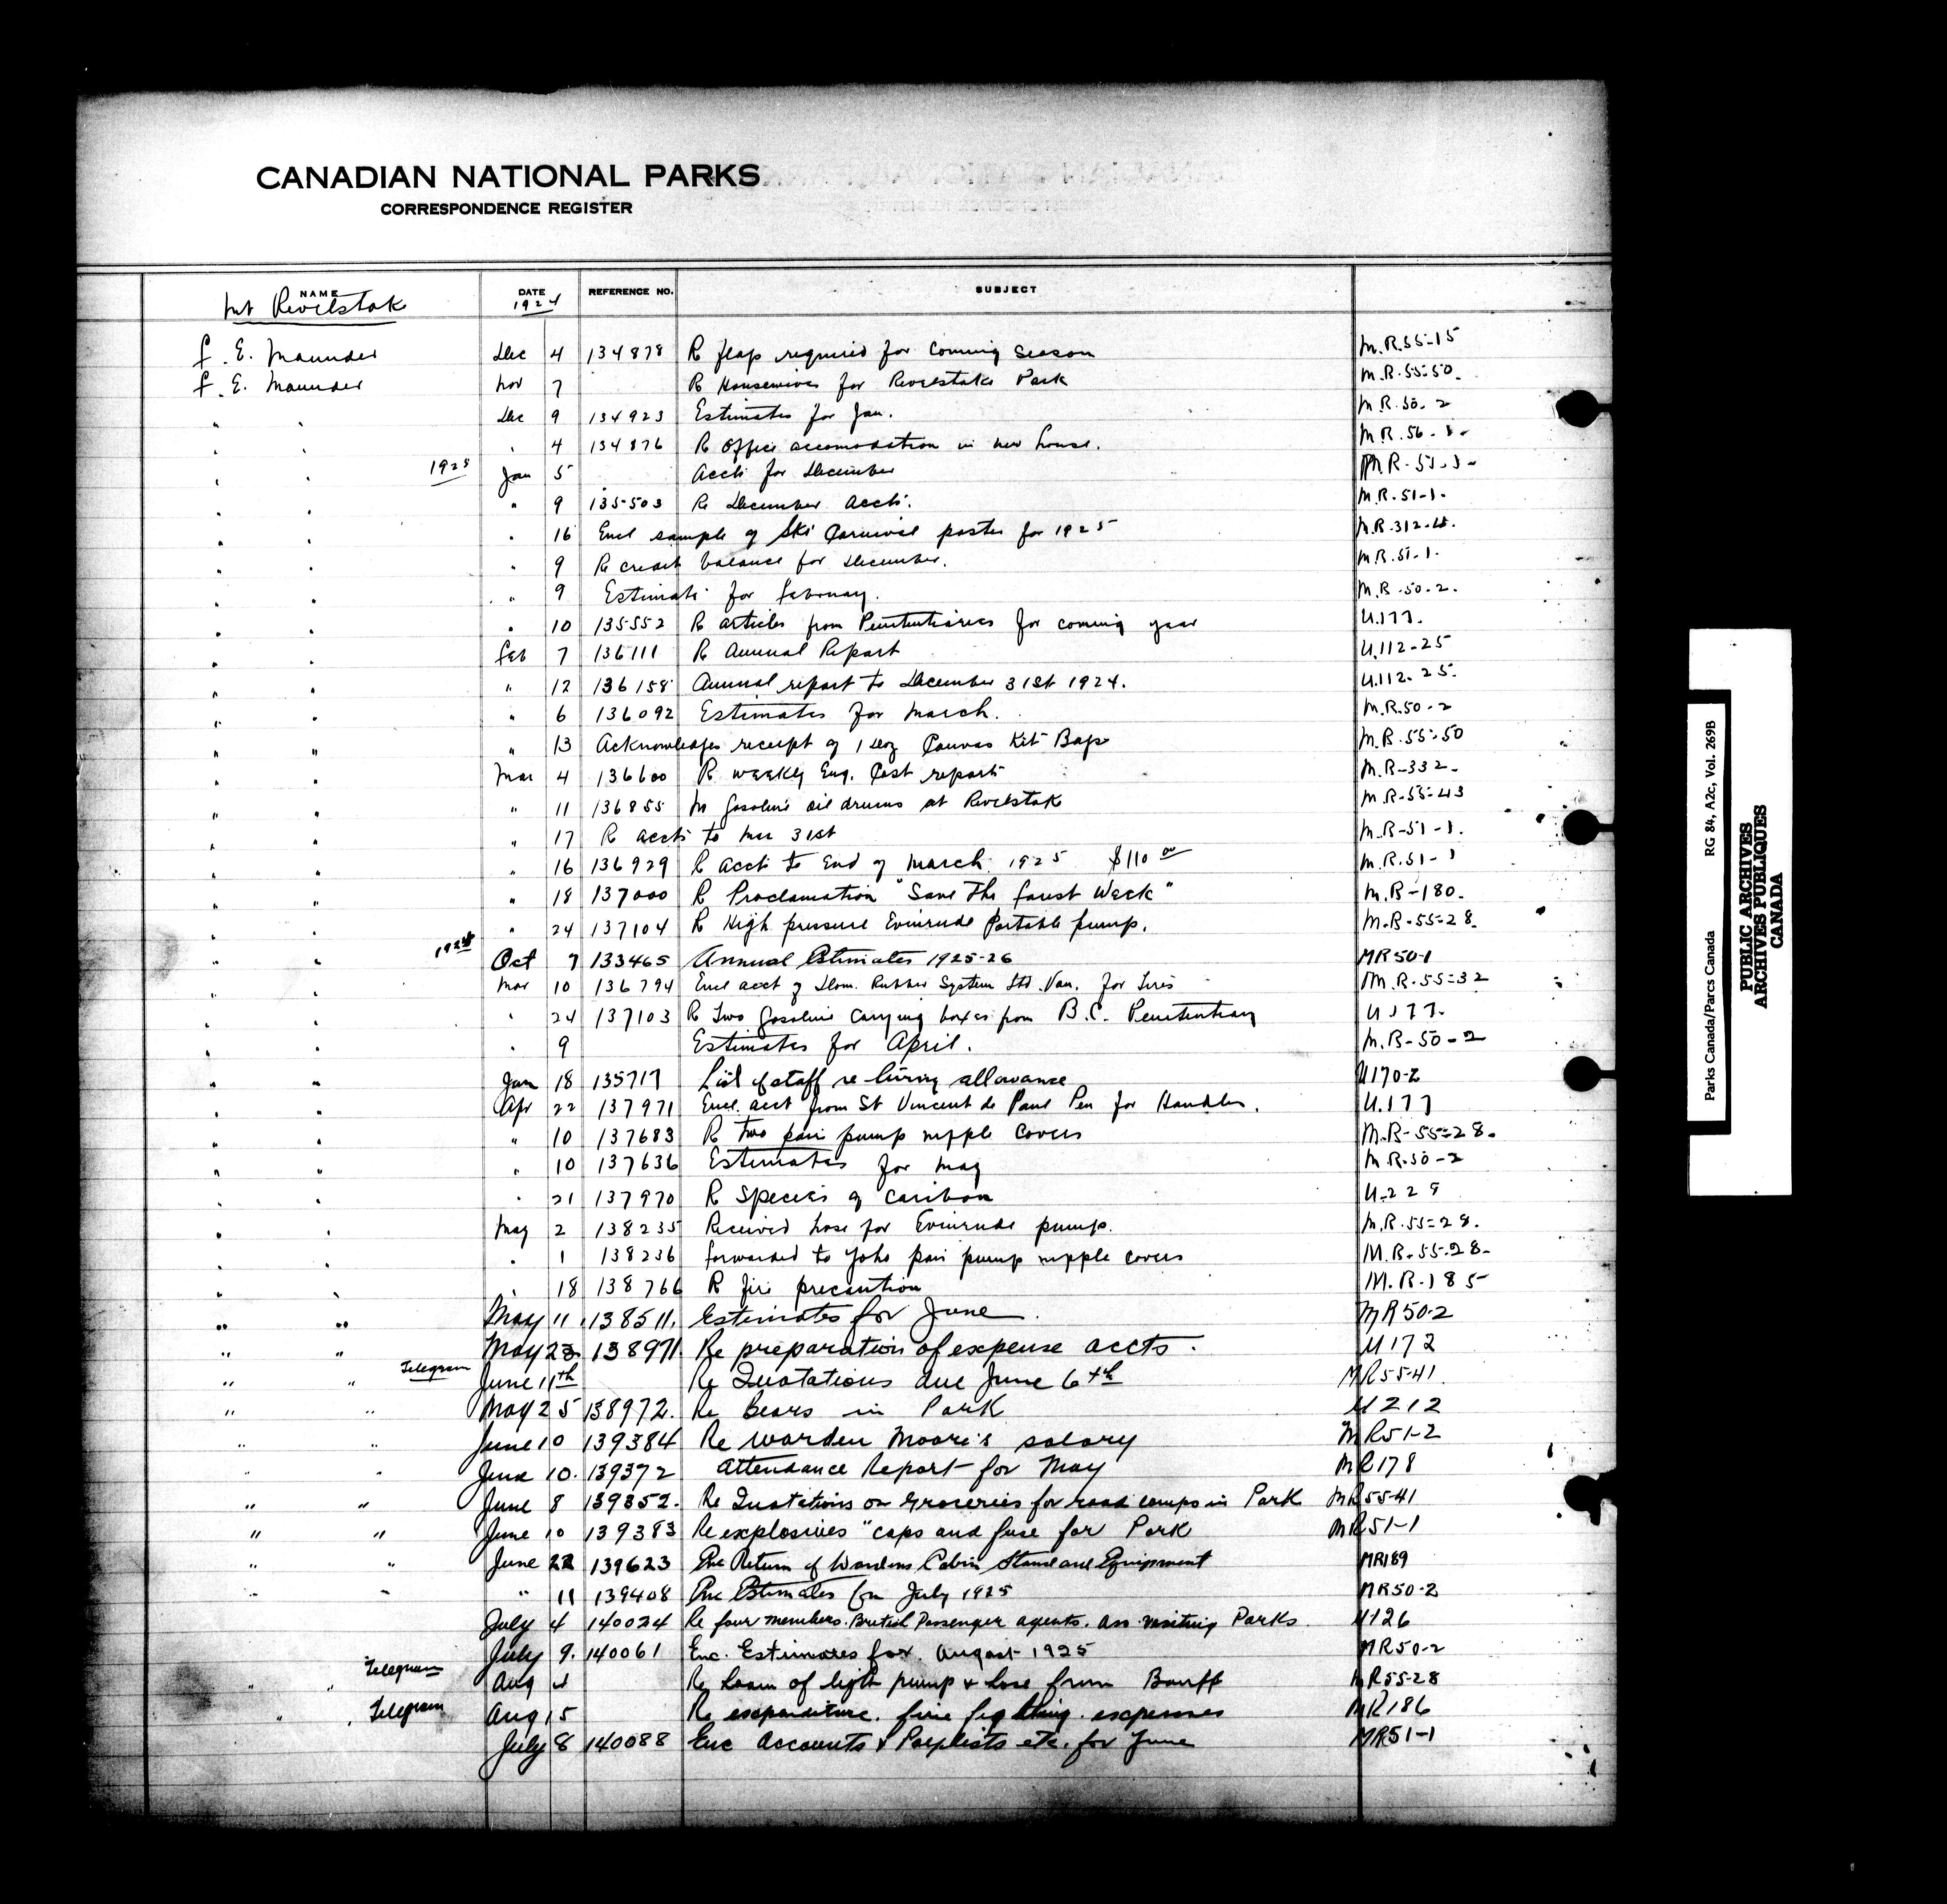 CANADIAN NATIONAL PARKS
CORRESPONDENCE REGISTER
NAME DATE REFERENCE NO. SUBJECT
Mt Revelstok 1924
F. E. Maunder Dec 4 134878 R flags required for coming season M.R.55-15
F. E. Maunder Nov 7 R Housewives for Revelstoke Park M.R.55-50.
" " Dec 9 134923 Estimates for Jan. M.R.50-2
" " " 4 134876 R Office accomodation in new house. M.R.56-
" " 1925 Jan 5 Accts for December M.R-51-1-
" " " 9 135503 Re December Accts. M.R.51-1-
" " " 16 Encl sample of Ski Carnival poster for 1925 M.R.312-
" " " 9 Re credit balance for December. M.R.51-1-
" " " 9 Estimate for February. M.R.50-2.
" " " 10 135552 R articles from Penitentiaries for coming year U.177.
" " Feb 7 136111 R Annual Report U.112-25
" " " 12 136158 Annual report to December 31st 1924. U.112-25.
" " " 6 136092 Estimates for March. M.R.50-2
" " " 13 Acknowledges receipt of 1 doz Canvas Kit Bags M.R.55-50
" " Mar 4 136600 R weekly Eng. Cost reports M.R-332-
" " " 11 136855 R gasoline oil drums at Revelstok M.R-55-43
" " " 17 R accts to Mar 31st M.R-51-1.
" " " 16 136929 R accts to End of March 1925 $110 00 M.R.51-1
" " " 18 137000 R Proclamation "Save The Forest Week" M.R-180.
" " " 24 137104 R High pressure Evinrude Portable pump. M.R.55-28.
" " 1924 Oct 7 133465 Annual Estimates 1925-26 MR50-1
" " Mar 10 136794 Encl acct of Dom. Rubber System Ltd. Van. for Tires M.R.55-32
" " " 24 137103 R Two gasoline carrying boxes from B.C. Penitentiary U177.
" " " 9 Estimates for April. M.R-50-2
" " Jan 18 135717 List of staff re living allowance U170-2
" " Apr 22 137971 Encl. acct from St Vincent de Paul Pen for Handles. U.177
" " " 10 137683 R two pair pump nipple covers M.R-55-28.
" " " 10 137636 Estimates for May M.R.50-2
" " " 21 137970 R Species of Caribou U-229
" " May 2 138235 Received hose for Evinrude pump. M.R.55-28.
" " " 1 138236 forwarded to Yoho pair pump nipple covers M.R.55-28-
" " " 18 138766 R fire precaution M.R.185
" " May 11 138511. Estimates for June MR50-2
" " May 23. 138971 Re preparation of expense accts. U172
" " Telegram June 11th Re Quotations due June 6th MR55-41.
" " May 25 138972. Re Bears in Park U212
" " June 10 139384 Re Warden Moore's salary MR51-2
" " June 10. 139372 Attendance Report for May MR178
" " June 8 139352. Re Quotations on Groceries for road camps in Park MR55-41
" " June 10 139383 Re explosives "caps and fuse for Park MR51-1
" " June 22 139623 Enc Return of Wardens Cabin Stoves and Equipment MR189
" " " 11 139408 Enc Estimates for July 1925 MR50-2
July 4 140024 Re four members. British Passenger agents. Ass. visiting Parks. U126
July 9. 140061 Enc. Estimates for August 1925 MR50-2
" " Telegram Aug 4 Re Loan of light pump & hose from Banff MR55-28
" " Telegram Aug 15 Re expenditure. fire fighting expenses MR186
July 8 140088 Enc Accounts & Paylists etc. for June MR51-1
Parks Canada/Parcs Canada RG 84, A2c, Vol. 269B
PUBLIC ARCHIVES
ARCHIVES PUBLIQUES
CANADA